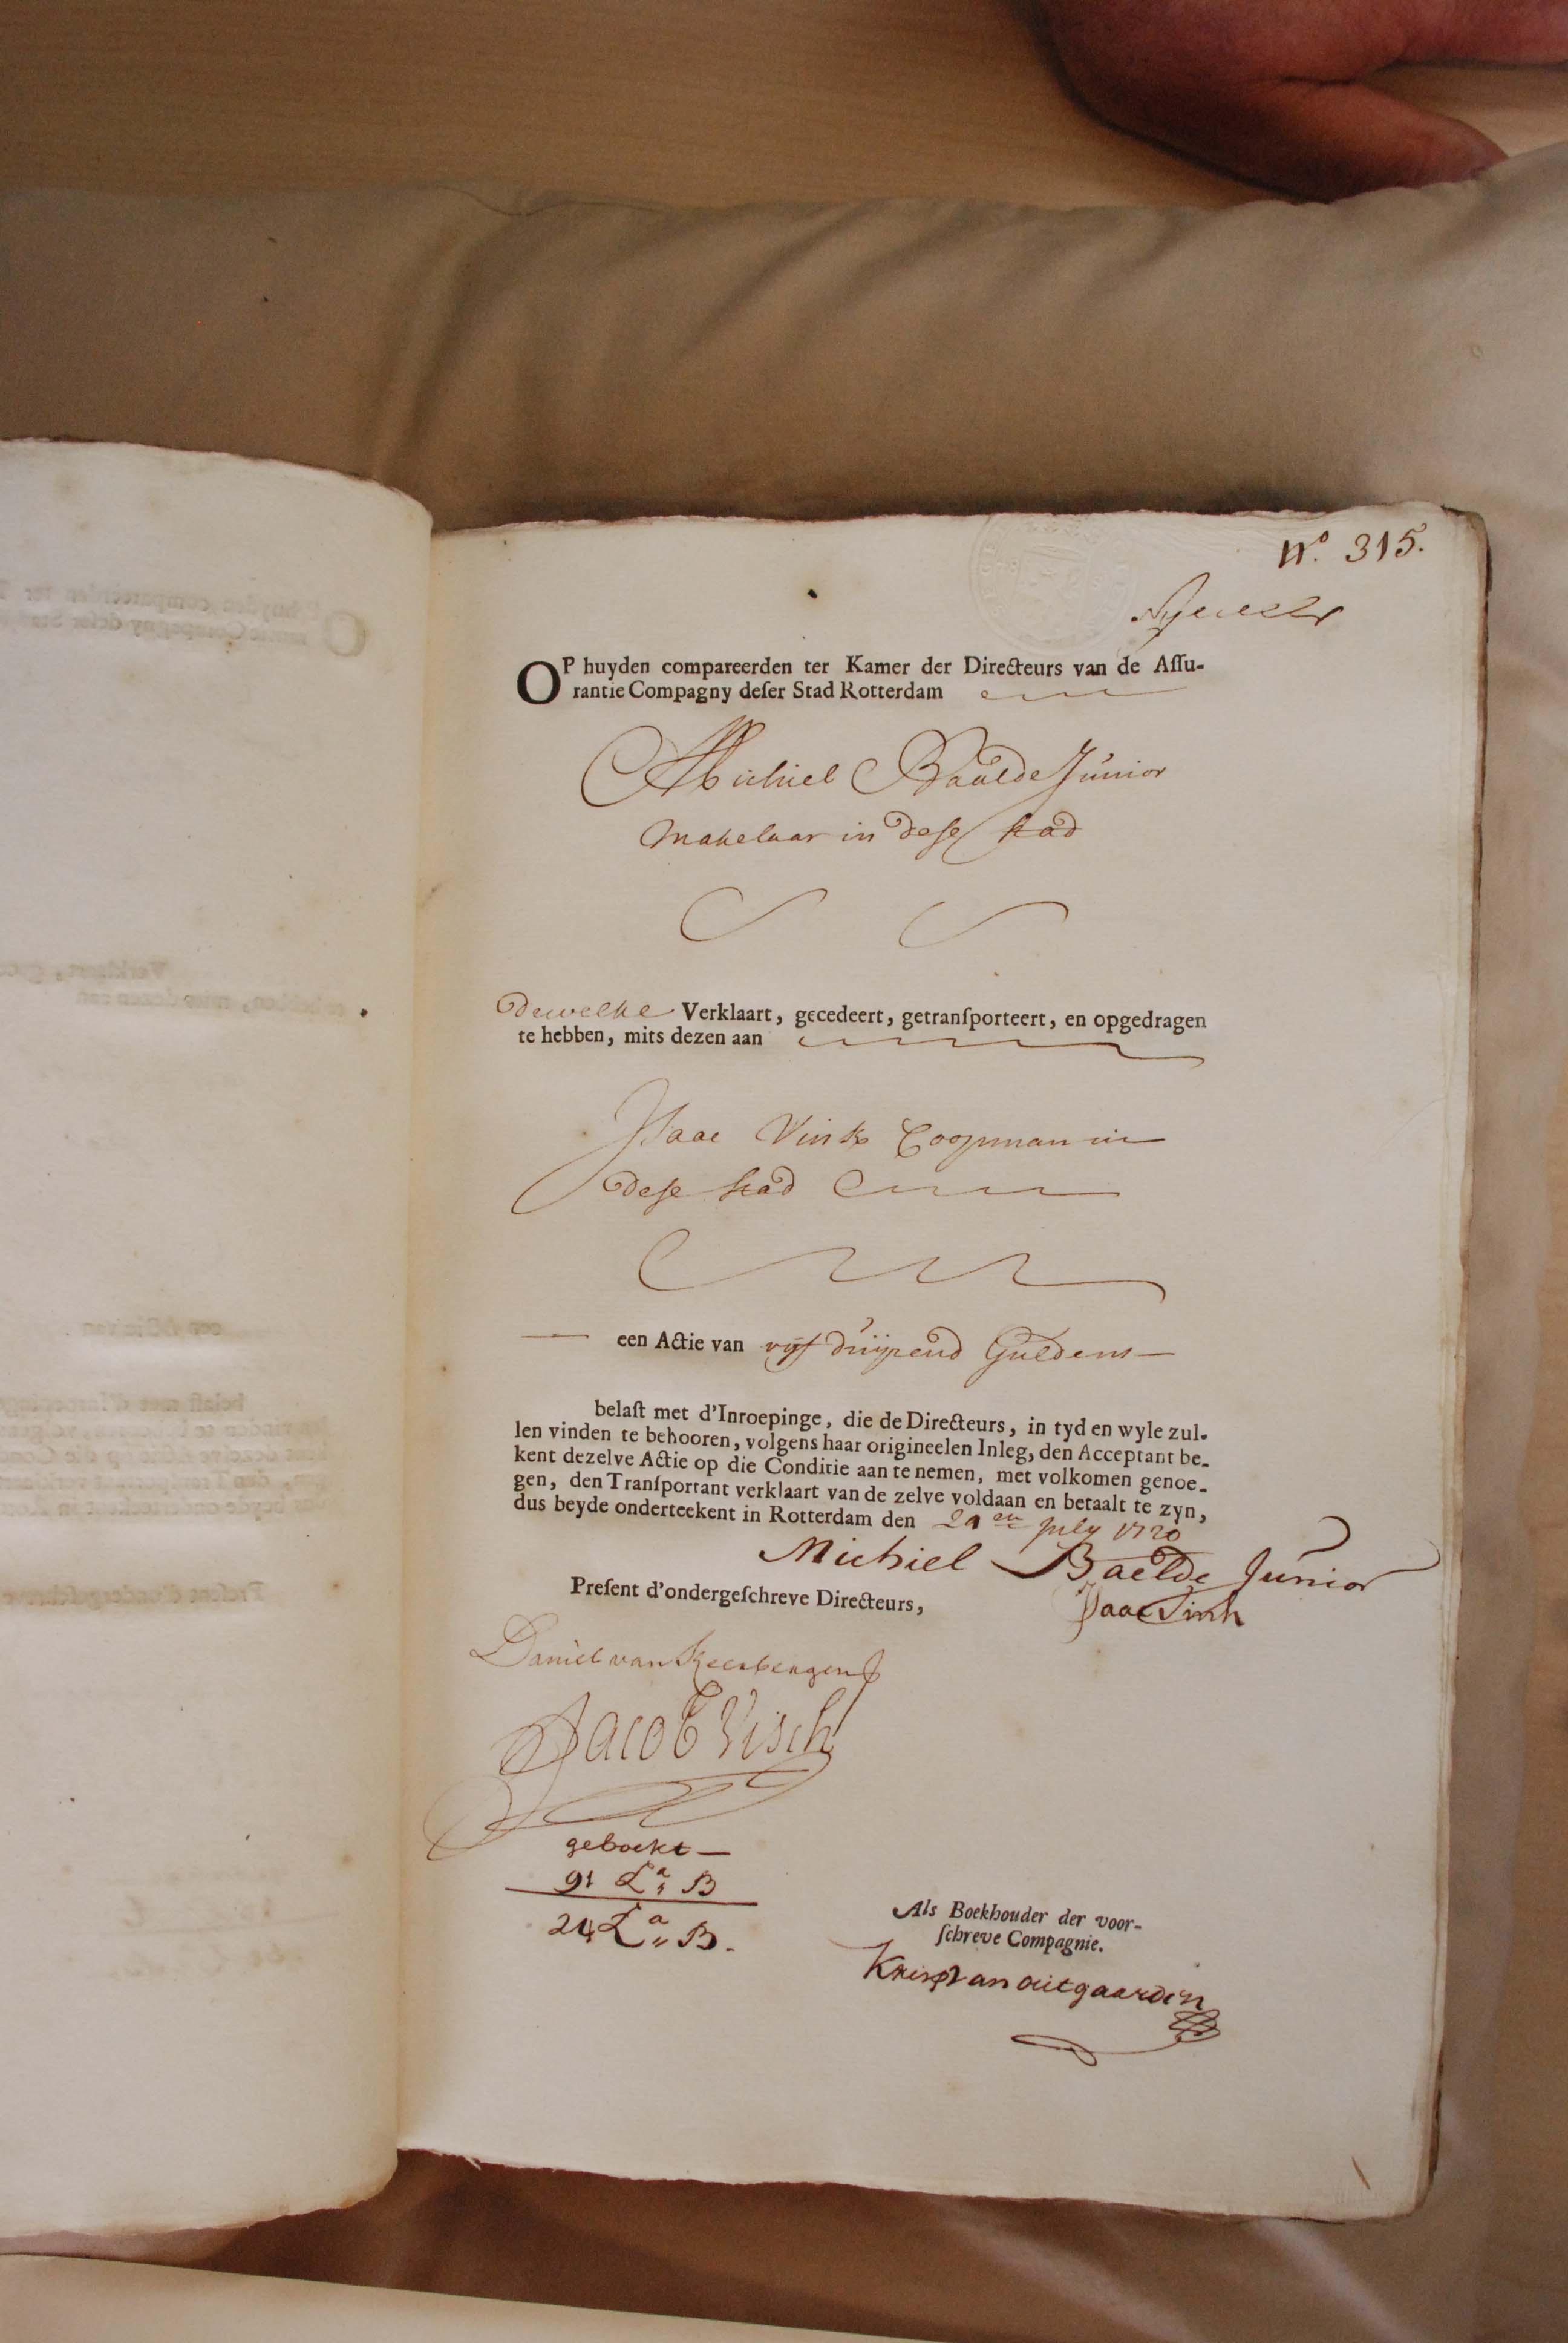 Nº. 315.
OP huyden compareerden ter Kamer der Directeurs van de Aſſu-
rantie Compagny deſer Stad Rotterdam
Michiel Baelde Junior
Makelaar in deſe ſtad
dewelke Verklaart, gecedeert, getranſporteert, en opgedragen
te hebben, mits dezen aan
Iſaac Vink Coopman in
deſe ſtad
een Actie van vijf duijzend Guldens
belaſt met d'Inroepinge, die de Directeurs, in tyd en wyle zul-
len vinden te behooren, volgens haar origineelen Inleg, den Acceptant be-
kent dezelve Actie op die Conditie aan te nemen, met volkomen genoe-
gen, den Tranſportant verklaart van de zelve voldaan en betaalt te zyn,
dus beyde onderteekent in Rotterdam den july 1720
Michiel Baelde Junior
Iſaac Vink
Preſent d'ondergeſchreve Directeurs,
Daniel van
Jacob Visch
geboekt
91 Lª B
24 Lª B.
Als Boekhouder der voor-
ſchreve Compagnie.
van outgaarden